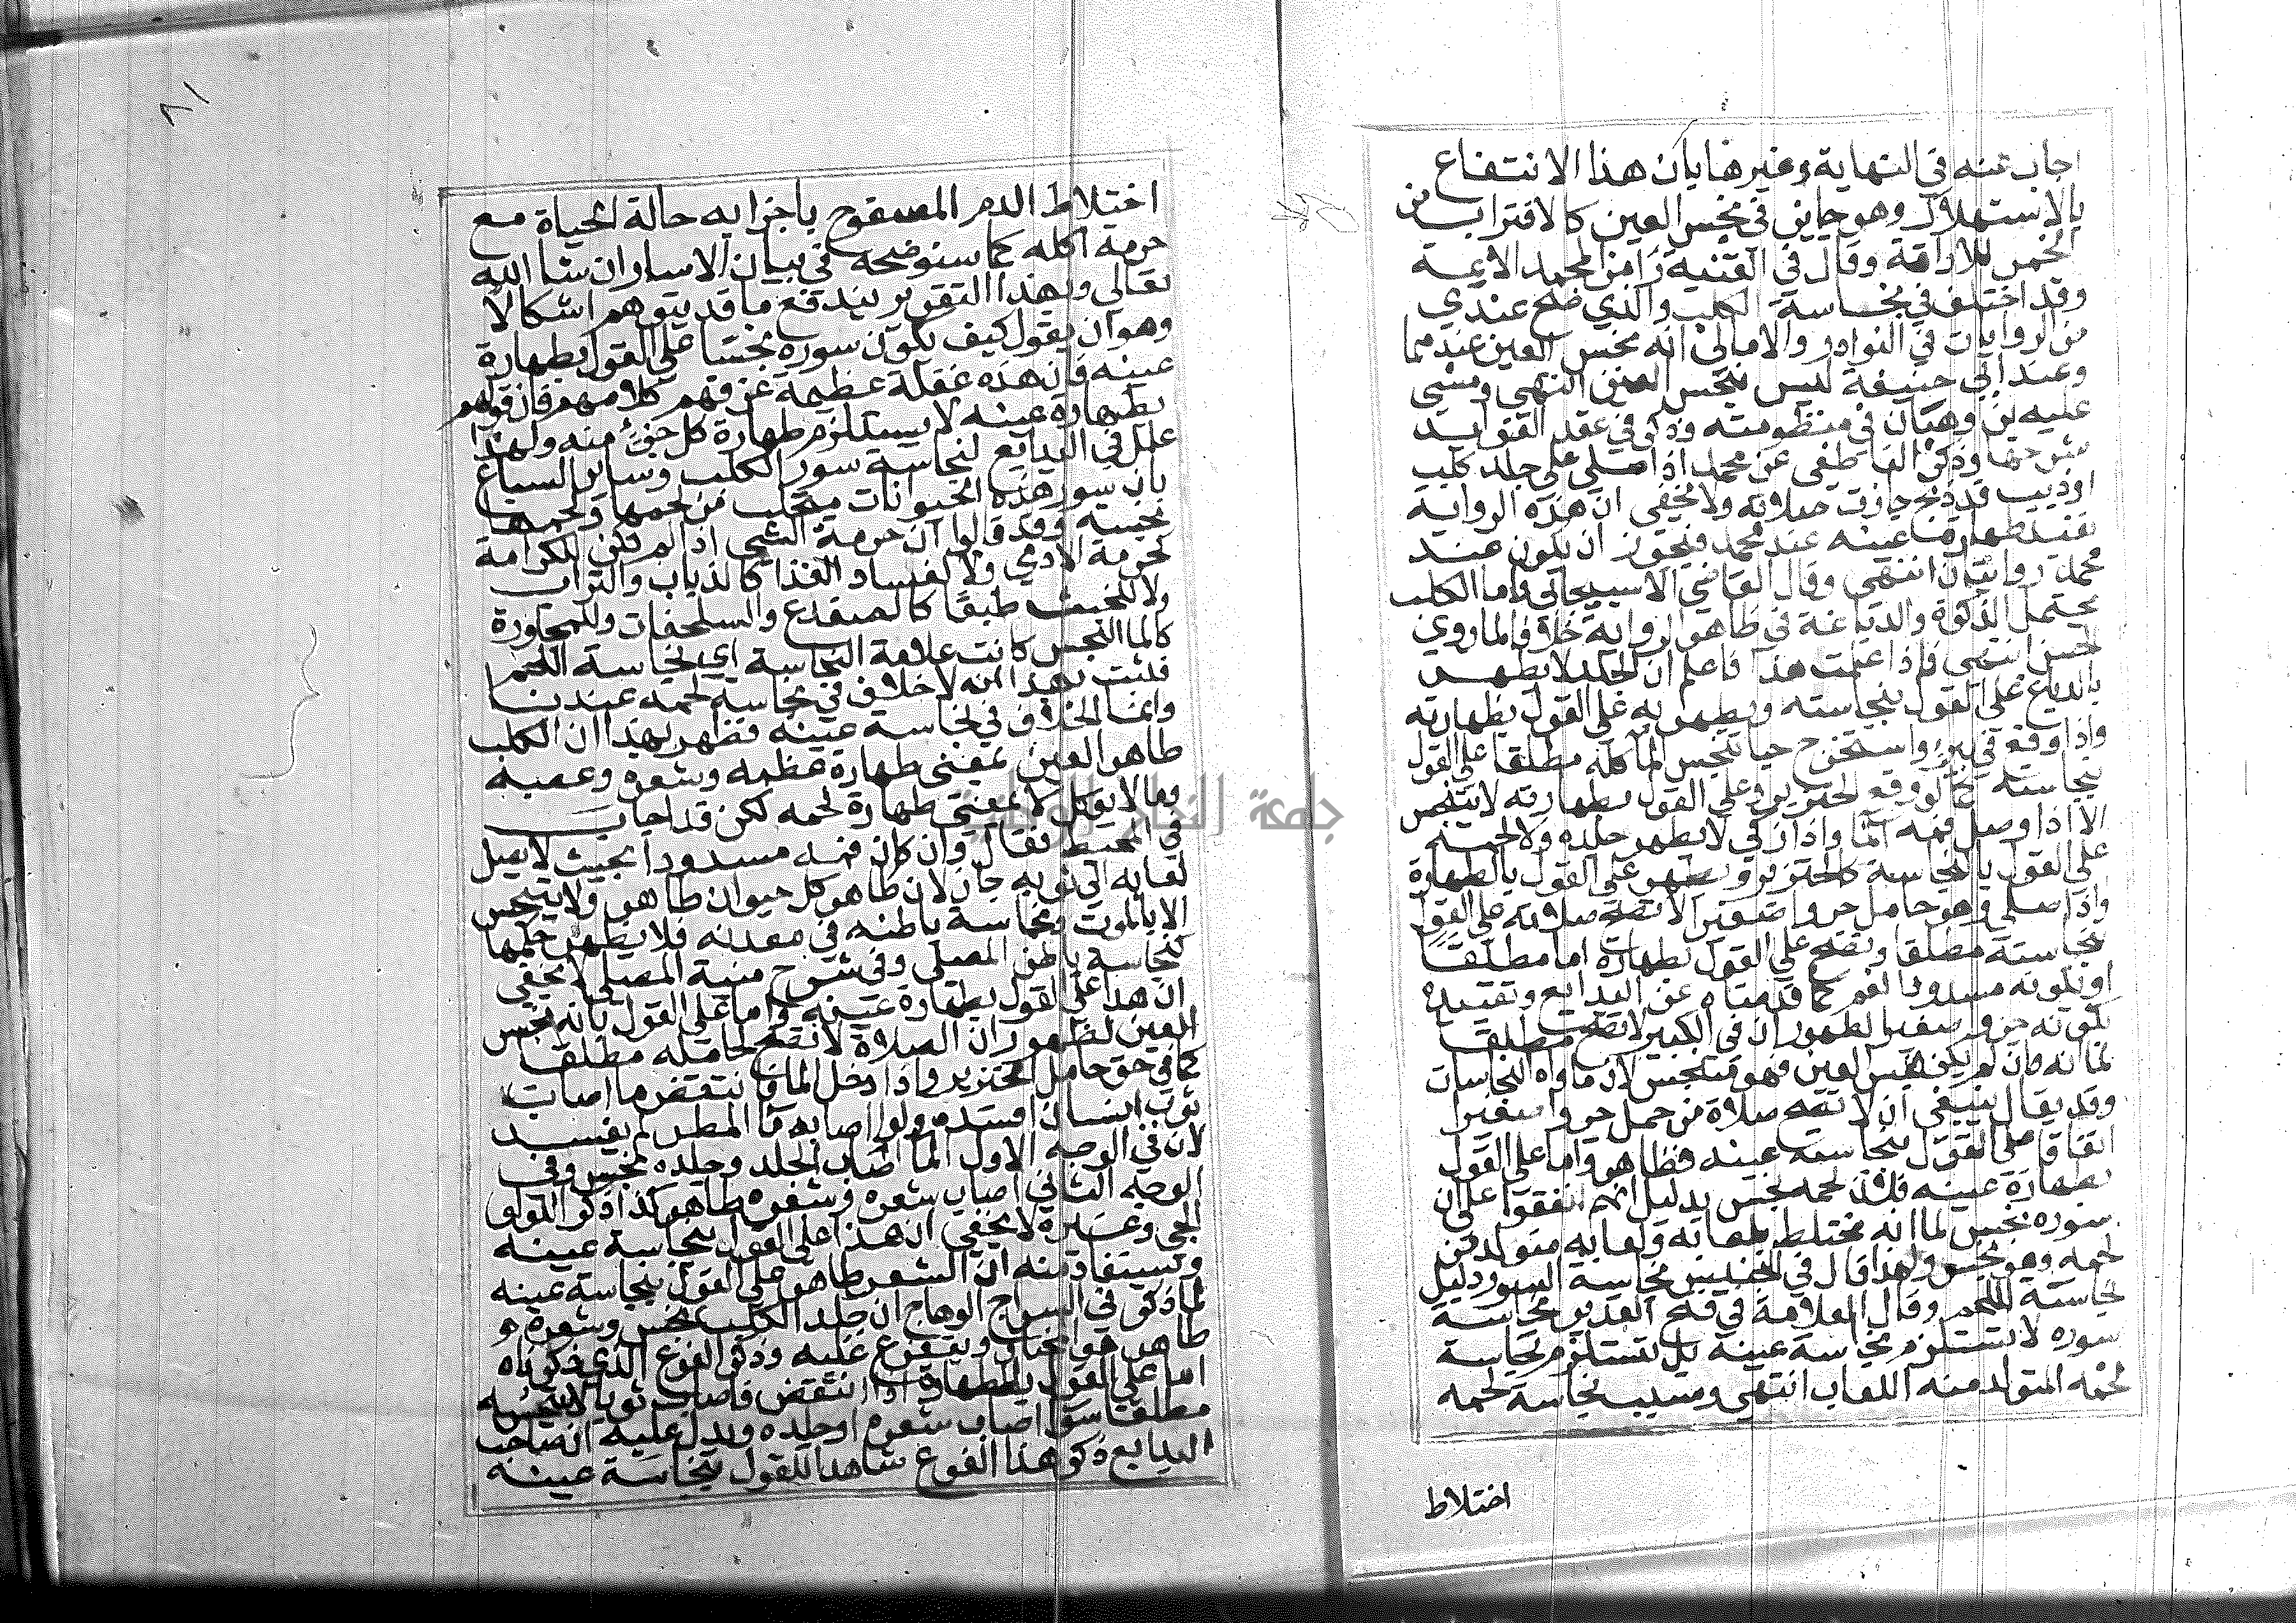 اجاب عنه في النهاية وغيرها بان هذا الانتفاع
بالاستهلاك وهو جايز في نجس العين كالاقتراب من
الخمر للاراقة وقال في القنية رامز المجد الايمة
وقد اختلف في نجاسة الكلب والذي صح عندي
من الروايات في النوادر والامالى انه نجس العين عندهما
وعند ابي حنيفة ليس بنجس العين انتهى ومشى
عليه بن وهبان في منظومته وذكر في عقد الفوايد
شرحها وذكر الناطفي عن محمد اذا صلى على جلد كلب
اوذيب قد ذبح جازت صلاته ولا يخفى ان هذه الرواية
تفيد طهارة عينه عند محمد فيجوز ان يكون عند
محمد روايتان انتهى وقال القاضي الاسبيجابي واما الكلب
يحتمل الذكوة والدباغة في ظاهر الرواية خلافا لما روي
الحسن انتهى فاذا علمت هذا فاعلم ان الجلد لا يطهر
بالدباغ على القول بنجاسته ويطهر به على القول بطهارته
واذا وقع في بير واستخرج حيا تنجس الما كله مطلقا على القول
بنجاسته كما لو وقع الخنزير وعلى القول بطهارته لا يتنجس
الا اذا وصل فمه الما واذا ذكي لا يطهر جلده ولا لحمه
على القول بالنجاسة كالخنزير ويطهر على القول بالطهارة
واذا صلى وهو حامل جروا صغيرا لا تصح صلاته على القول
بنجاسته مطلقا وتصح على القول بطهارة اما مطلقا
او بكونه مسدود الفم كما قدمناه عن البدايع وتقييده
بكونه جرو صغير لظهور ان في الكبير لا تصح مطلقا
لما انه وان لم يكن نجس العين فهو متنجس لان ماواه النجاسات
وقد يقال ينبغي ان لا تصح صلاة من حمل جروا صغيرا
اتفاقا على القول بنجاسة عينه فظاهر واما على القول
بطهارة عينه فلان لحمه نجس بدليل انهم اتفقوا على ان
سوره نجس لما انه مختلط بلعابه ولعابه متولد من
لحمه وهو نجس ولهذا قال في التجنيس نجاسة السور دليل
نجاسة اللحم وقال العلامة في فتح القدير نجاسة
سوره لا تستلزم نجاسة عينه بل تستلزم نجاسة
لحمه المتولد منه اللعاب انتهى وسبب نجاسة لحمه
اختلاط
٨١
اختلاط الدم المسفوح باجزايه حالة الحياة مع
حرمة اكله كما سنوضحه في بيان الاسار ان شا الله
تعالى وبهذا التقرير يندفع ما قد يتوهم اشكالا
وهو ان يقول كيف يكون سوره نجسا على القول بطهارة
عينه فان هذه غفلة عظيمة عن فهم كلامهم فان قولهم
بطهارة عينه لا يستلزم طهارة كل جزء منه ولهذا
علل في البدايع لنجاسة سور الكلب وساير السباع
بان سور هذه الحيوانات متحلب من لحمها ولحمها
نجس وقد قالوا ان حرمة الشي اذا لم تكن للكرامة
لحرمة الادمي ولا لفساد الغذا كالذباب والتراب
ولا للخبث طبعا كالضفدع والسلحفات وللمجاورة
كالما النجس كانت علامة النجاسة اي نجاسة اللحم
فثبت بهذا انه لا خلاف في نجاسة لحمه عندنا
وانما الخلاف في نجاسة عينه فظهر بهذا ان الكلب
طاهر العين بمعنى طهارة عظمه وشعره وعصبه
وما لا يوكل لا بمعنى طهارة لحمه لكن قد اجاب
في المحيط فقال وان كان فمه مسدودا بحيث لا يصل
لعابه الى ثوبه جاز لان ظاهر كل حيوان طاهر ولا يتنجس
الا بالموت ونجاسة باطنه في معدنه فلا يظهر حكمها
كنجاسة باطن المصلى وفي شرح منية المصلى لا يخفى
ان هذا على القول بطهارة عينه واما على القول بانه نجس
العين لظهور ان الصلاة لا تصح لحامله مطلقا
كما في حق حامل الخنزير واذا دخل الما فانتفض ما اصاب
ثوب انسان افسده ولو اصابه ما المطر لم يفسد
لان في الوجه الاول الما اصاب الجلد وجلده نجس وفي
الوجه الثاني اصاب شعره وشعره طاهر كذا ذكر الولوالجي
وغيره لا يخفى ان هذا على القول بنجاسة عينه
ويستفاد منه ان الشعر طاهر على القول بنجاسة عينه
لما ذكر في السراج الوهاج ان جلد الكلب نجس وشعره
طاهر هو المختار ويتفرع عليه وذكر الفرع الذي ذكرناه
اما على القول بالطهارة اذا انتفض فاصاب ثوبا لا ينجسه
مطلقا سوا اصاب شعره او جلده ويدل عليه ان صاحب
البدايع ذكر هذا الفرع شاهدا للقول بنجاسة عينه
جامعة النجاح الوطنية